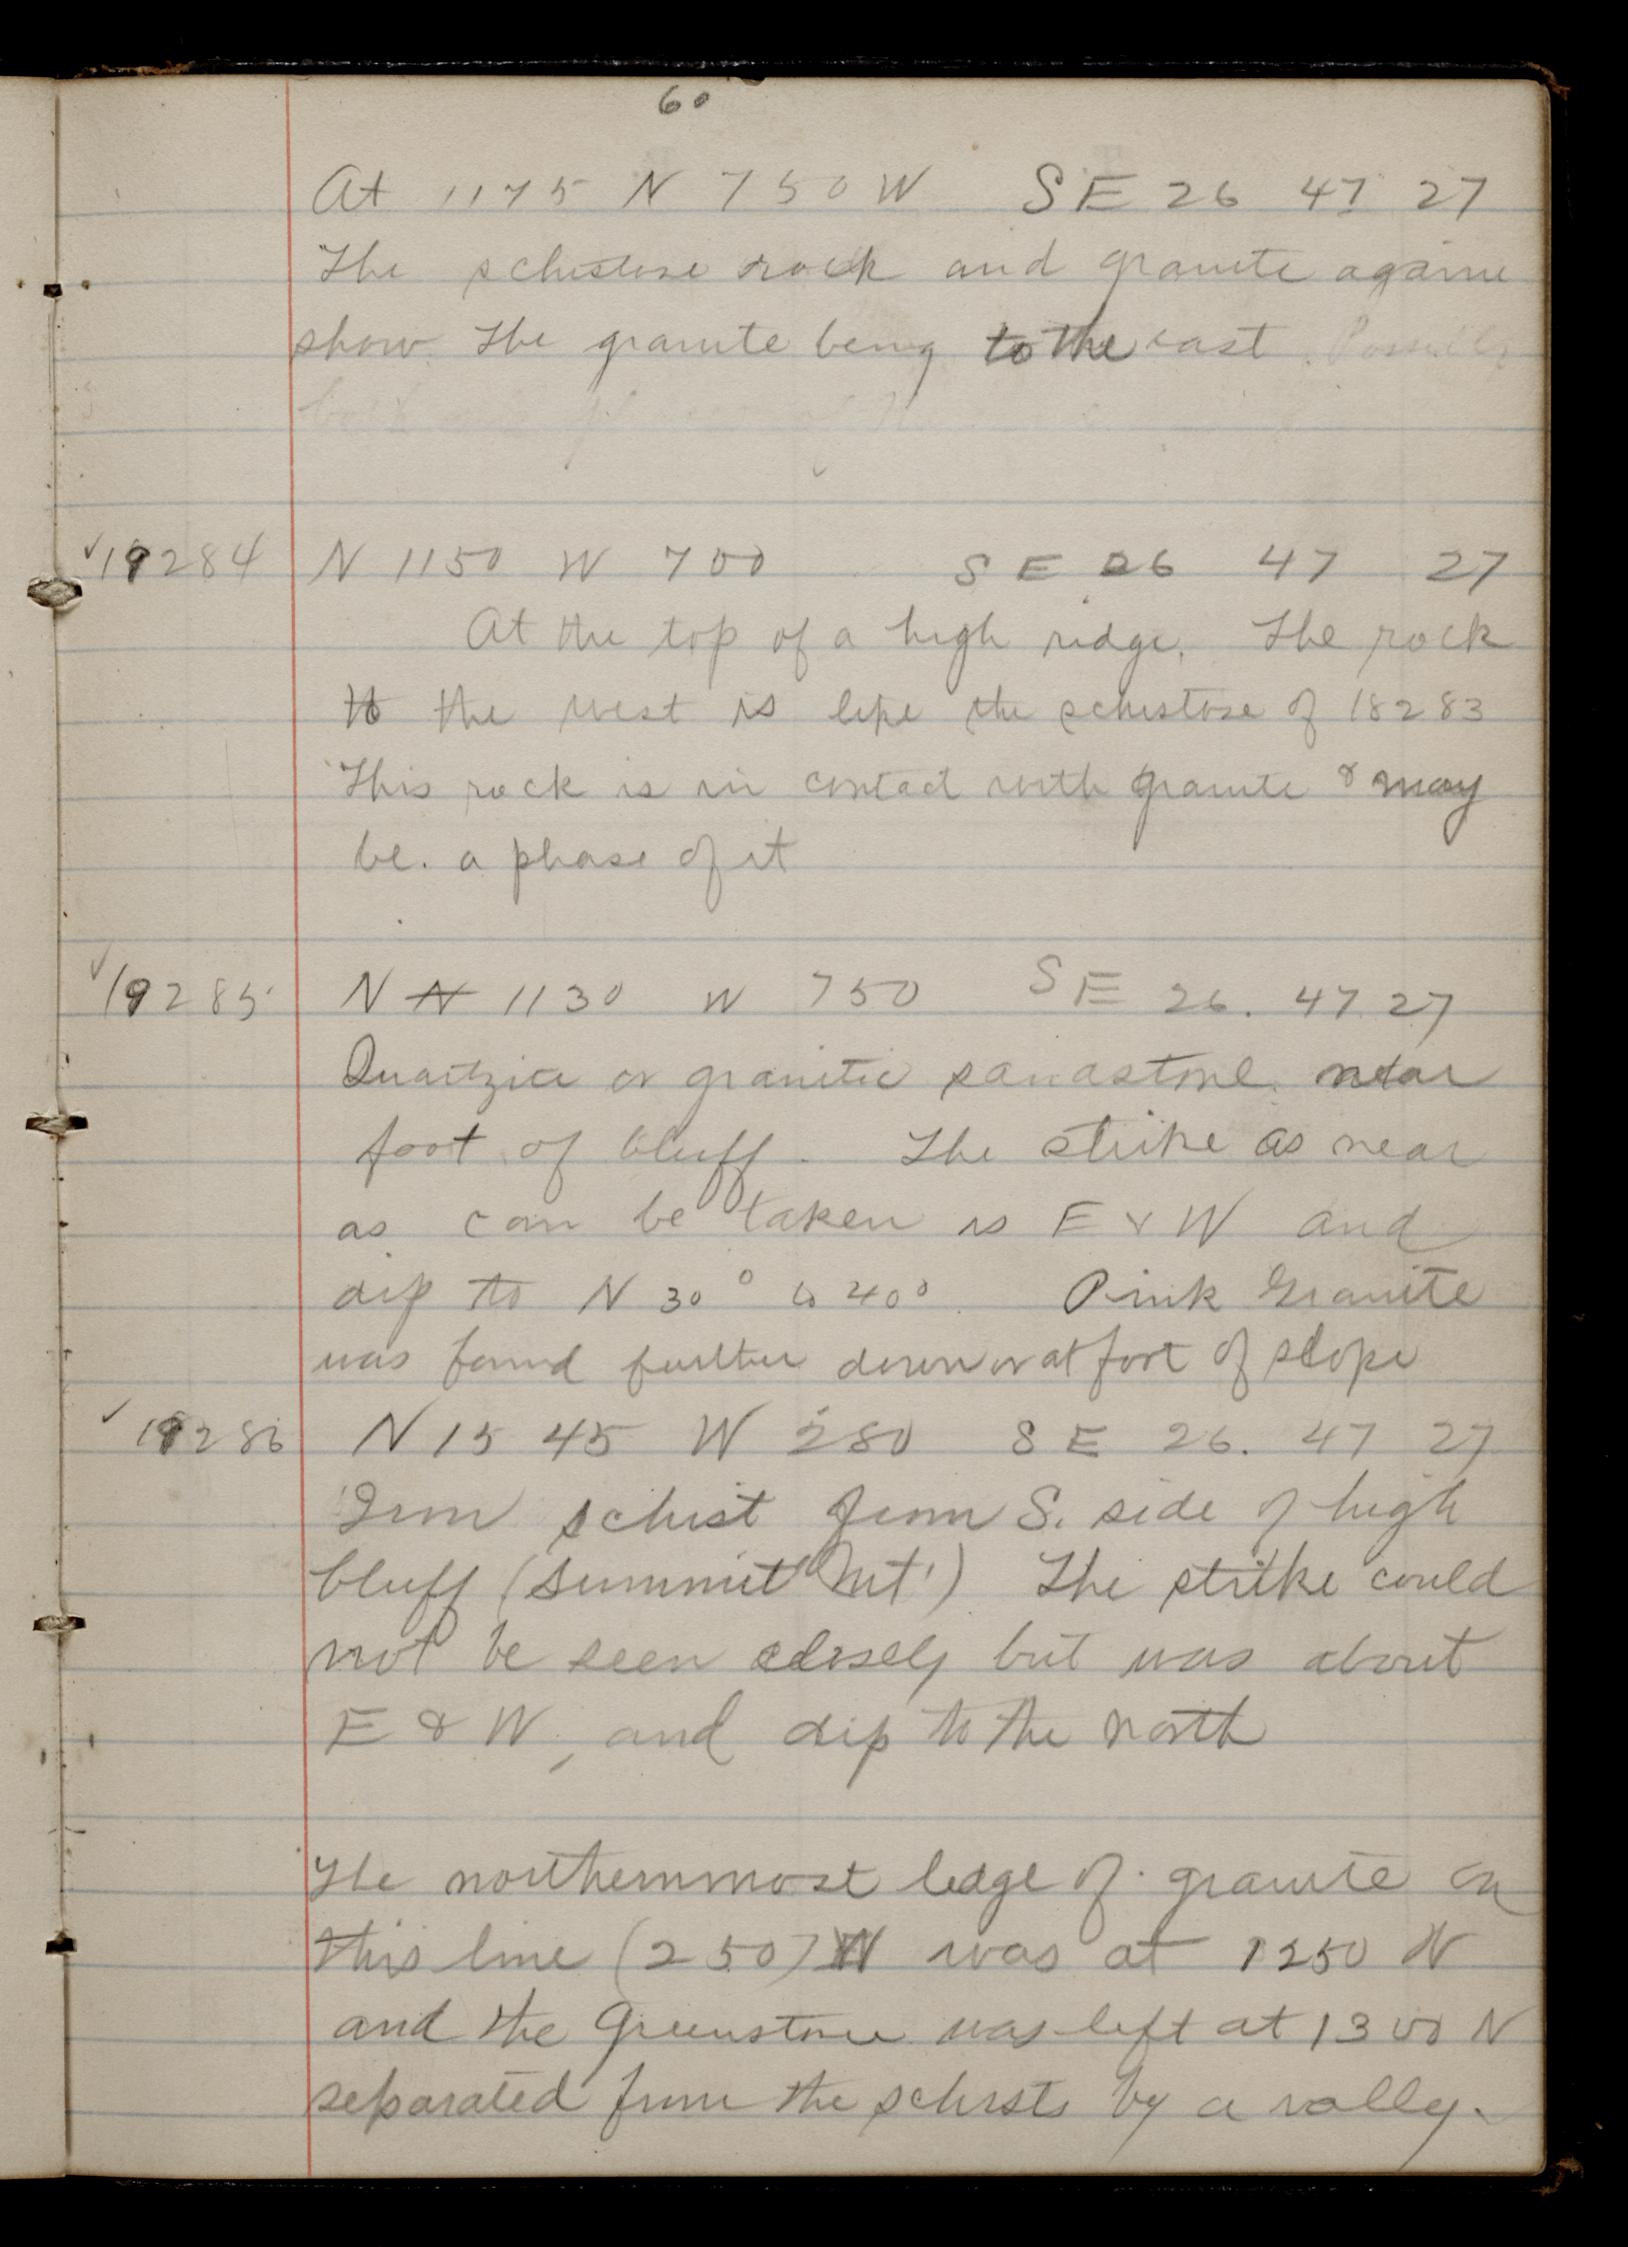 60
At 1175 N 750 W SE 26 47 27
The schistose rock and granite againe
show. The granite being to the east. Possibly
✓19284 N 1150 W 700 SE 26 47 27
At the top of a high ridge. The rock
to the west is like the schistose of 18283
This rock is in contact with granite & may
be. a phase of it
✓19285 N N 1130 W 750 SE 26. 47 27
Quartzite or granitic sandstone. near
foot of bluff. The strike as near
as can be taken is E & W and
dip to N 30° to 40°. Pink Granite
was found further down or at foot of slope
✓19286 N 1545 W 280 SE 26. 47 27
Iron schist from S. side of high
bluff (Summit Mt.) The strike could
not be seen closely but was about
E & W, and dip to the north
The northernmost ledge of granite on
this line (250) W was at 1250 N
and the Greenstone was left at 1300 N
separated from the schists by a vally.